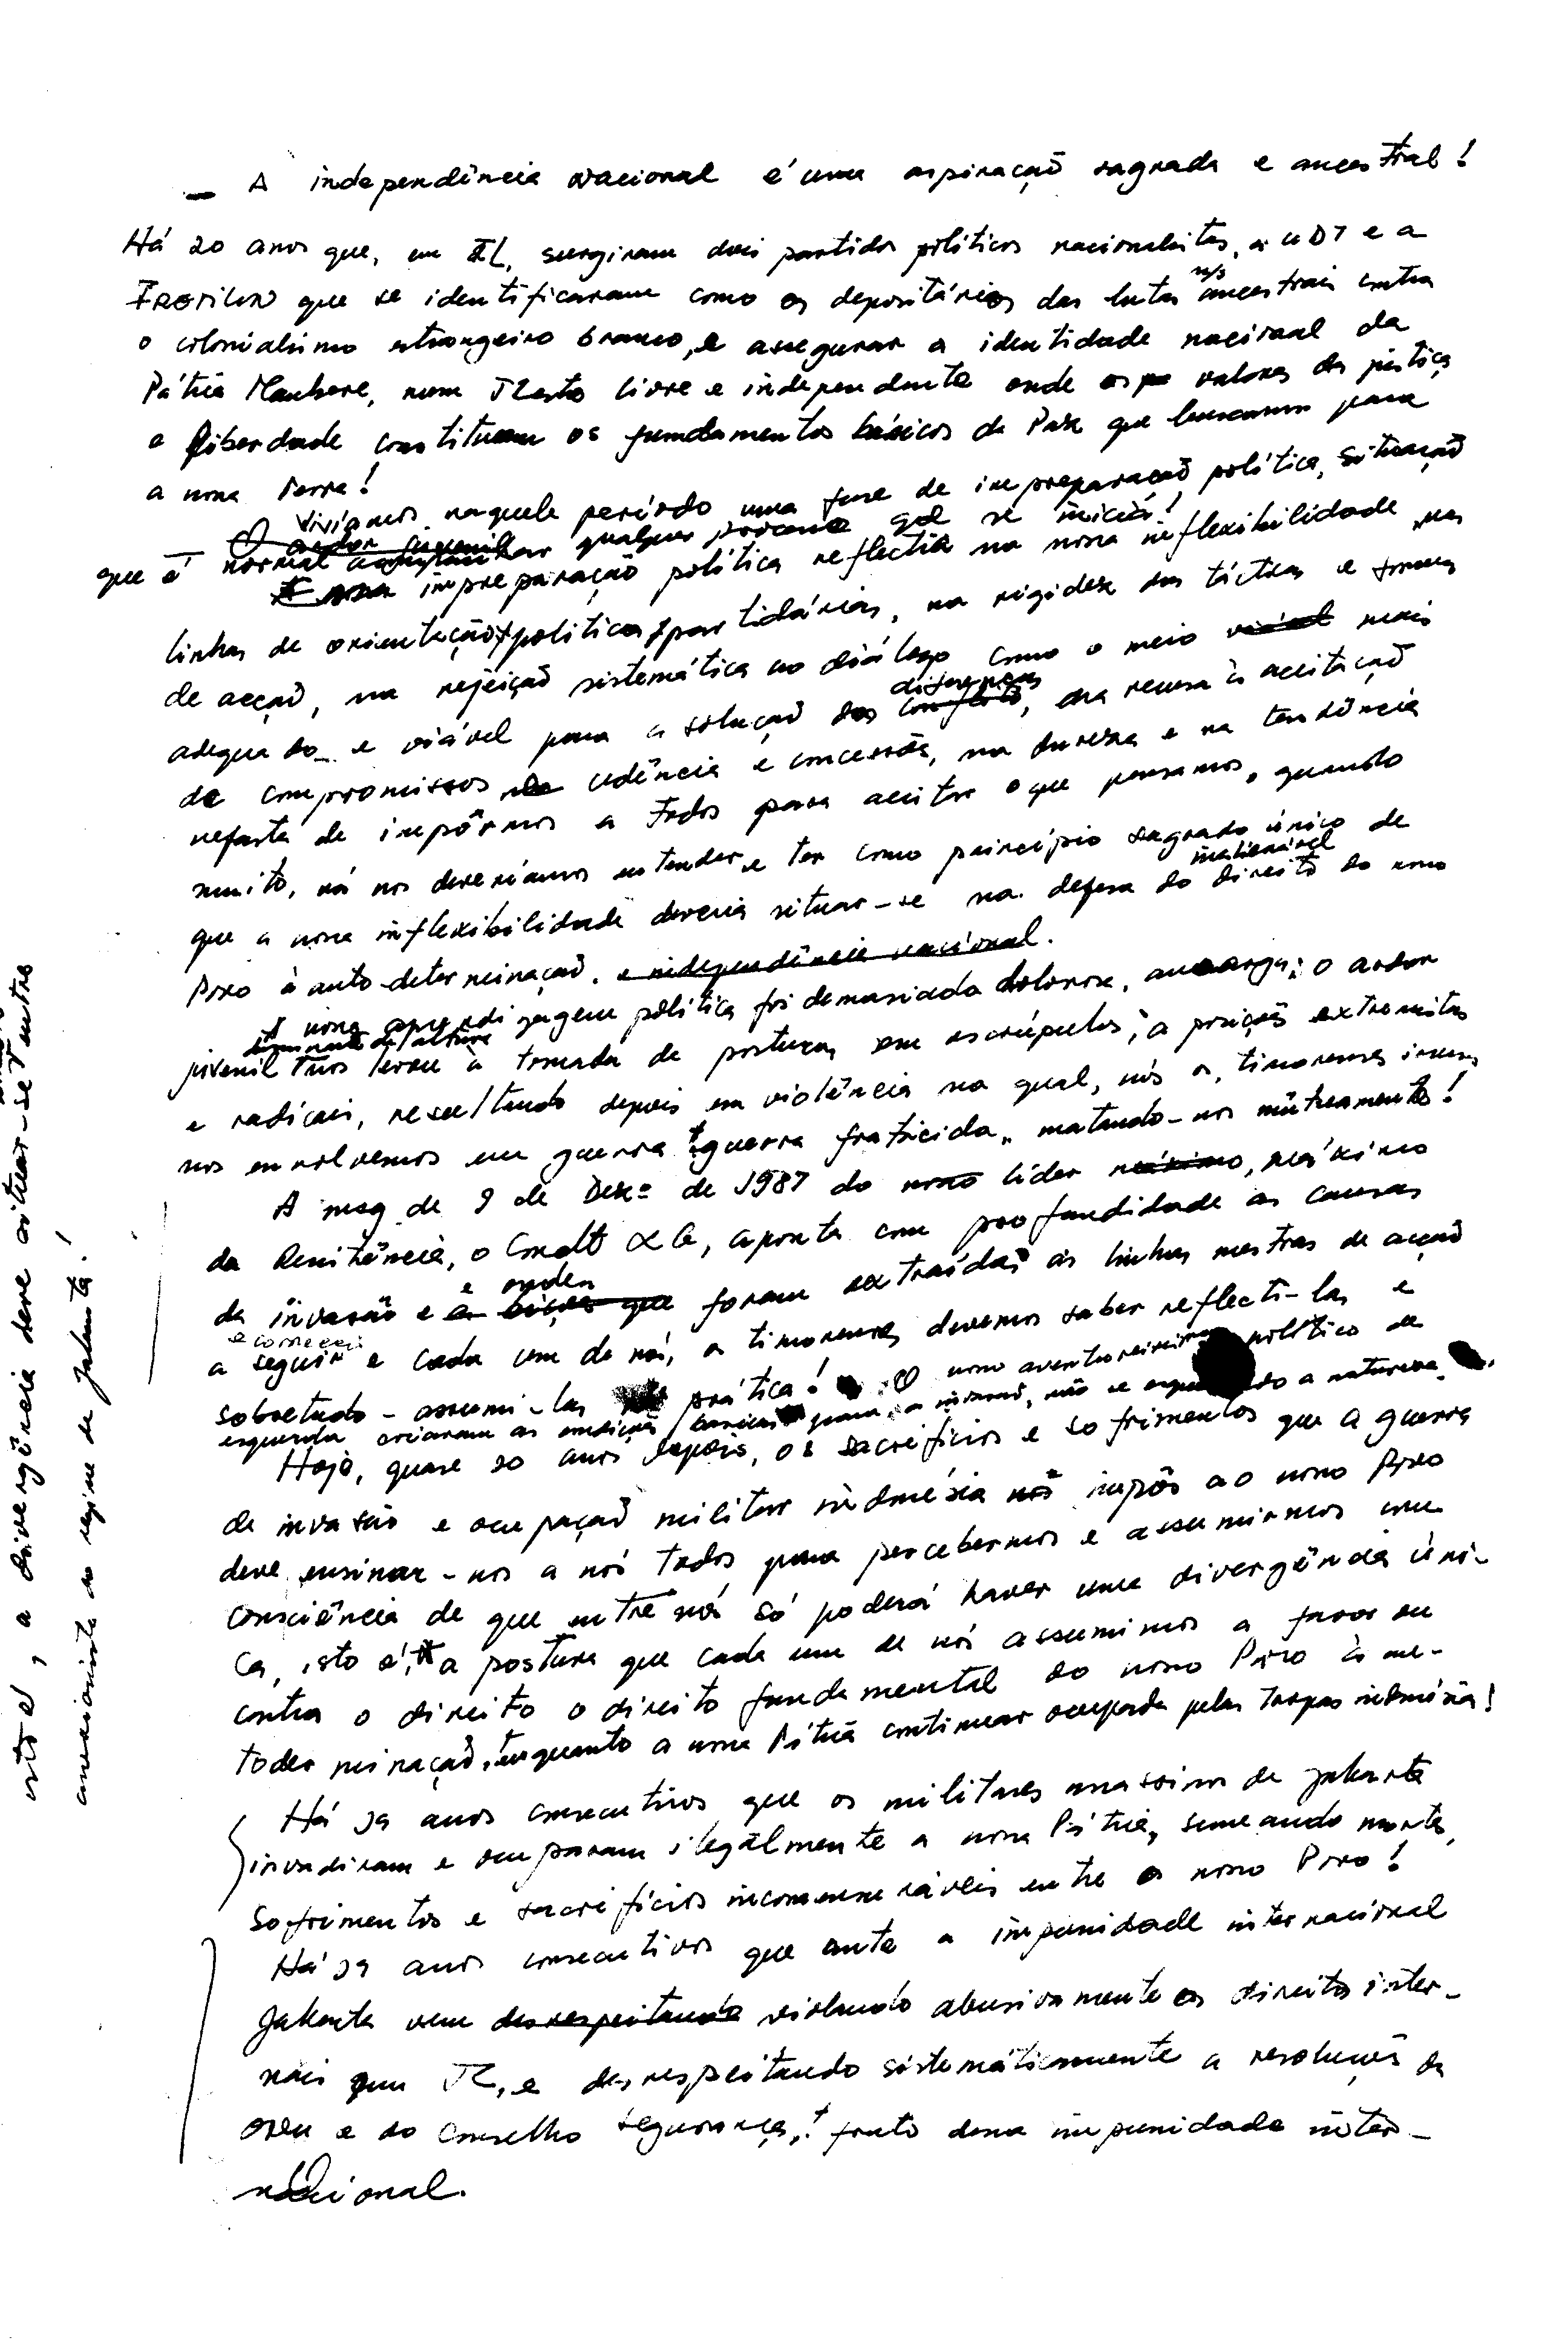 — A independência nacional é uma aspiração sagrada e ancestral!
Há 20 anos que, em TL, surgiram dois partidos políticos nacionalistas, a UDT e a
FRETILIN que se identificaram como os depositários das lutas n/s ancestrais contra
o colonialismo estrangeiro branco, e assegurar a identidade nacional da
Pátria Maubere, num T Leste livre e independente onde os valores da justiça
e liberdade constituem os fundamentos básicos da Paz que buscamos para
a nossa Terra!
Vivíamos naquele período uma fase de impreparação política, situação
que é normal acompanhar qualquer processo que se inicia!
A nossa impreparação política reflectia na nossa inflexibilidade, nas
linhas de orientação política partidárias, na rigidez das tácticas e formas
de acção, na rejeição sistemática ao diálogo como o meio viável mais
adequado e viável para a solução das conflito diferenças, na recusa à aceitação
de compromissos cedência e concessões, na dureza e na tendência
nefasta de impôrmos a todos para aceitar o que pensamos, quando
muito, nós nos deveríamos entender e ter como princípio sagrado único de
que a nossa inflexibilidade deveria situar-se na defesa do inalienável direito do nosso
Povo à auto-determinação. e independência nacional.
A nossa aprendizagem política foi demasiado dolorosa, amarga; o ardor
juvenil nos levou à tomada de posturas sem escrúpulos, a posições extremistas
e radicais, resultando depois em violência na qual, nós os timorenses irmãos
nos envolvemos em guerra guerra fratricida, matando-nos mùtuamente!
A msg de 9 de Dezº de 1987 do nosso líder máximo, máximo
da Resistência, o Cmdt XG, aponta com profundidade as causas
da invasão e e onde foram extraídas as linhas mestras de acção
a seguir e correcção e cada um de nós, os timorenses devemos saber reflecti-las e
sobretudo - assumi-las prática! O nosso aventureirismo político de
esquerda criaram as condições básicas para a invasão, não se a natureza
Hoje, quase 20 anos depois, os sacrifícios e sofrimentos que a guerra
de invasão e ocupação militar indonésia nos impôs ao nosso Povo
deve ensinar-nos a nós todos para percebermos e assumirmos uma
consciência de que entre nós só poderá haver uma divergência úni-
ca, isto é, a postura que cada um de nós assumimos a favor ou
contra o direito o direito fundamental do nosso Povo à au-
todeterminação, enquanto a nossa Pátria continuar ocupada pelas tropas indonésia!
Há 19 anos consecutivos que os militares assassinos de Jakarta
invadiram e ocuparam ilegalmente a nossa Pátria, semeando mortes,
sofrimentos e sacrifícios incomensuráveis entre o nosso Povo!
Há 19 anos consecutivos que ante a impunidade internacional
Jakarta vem desrespeitando violando abusivamente os direitos inter-
nais em TL, e desrespeitando sistemáticamente a resoluções da
ONU e do Conselho Segurança, fruto dessa impunidade inter-
nacional.
isto é, a divergência deve situar-se entre
anexionista do regime de Jakarta!